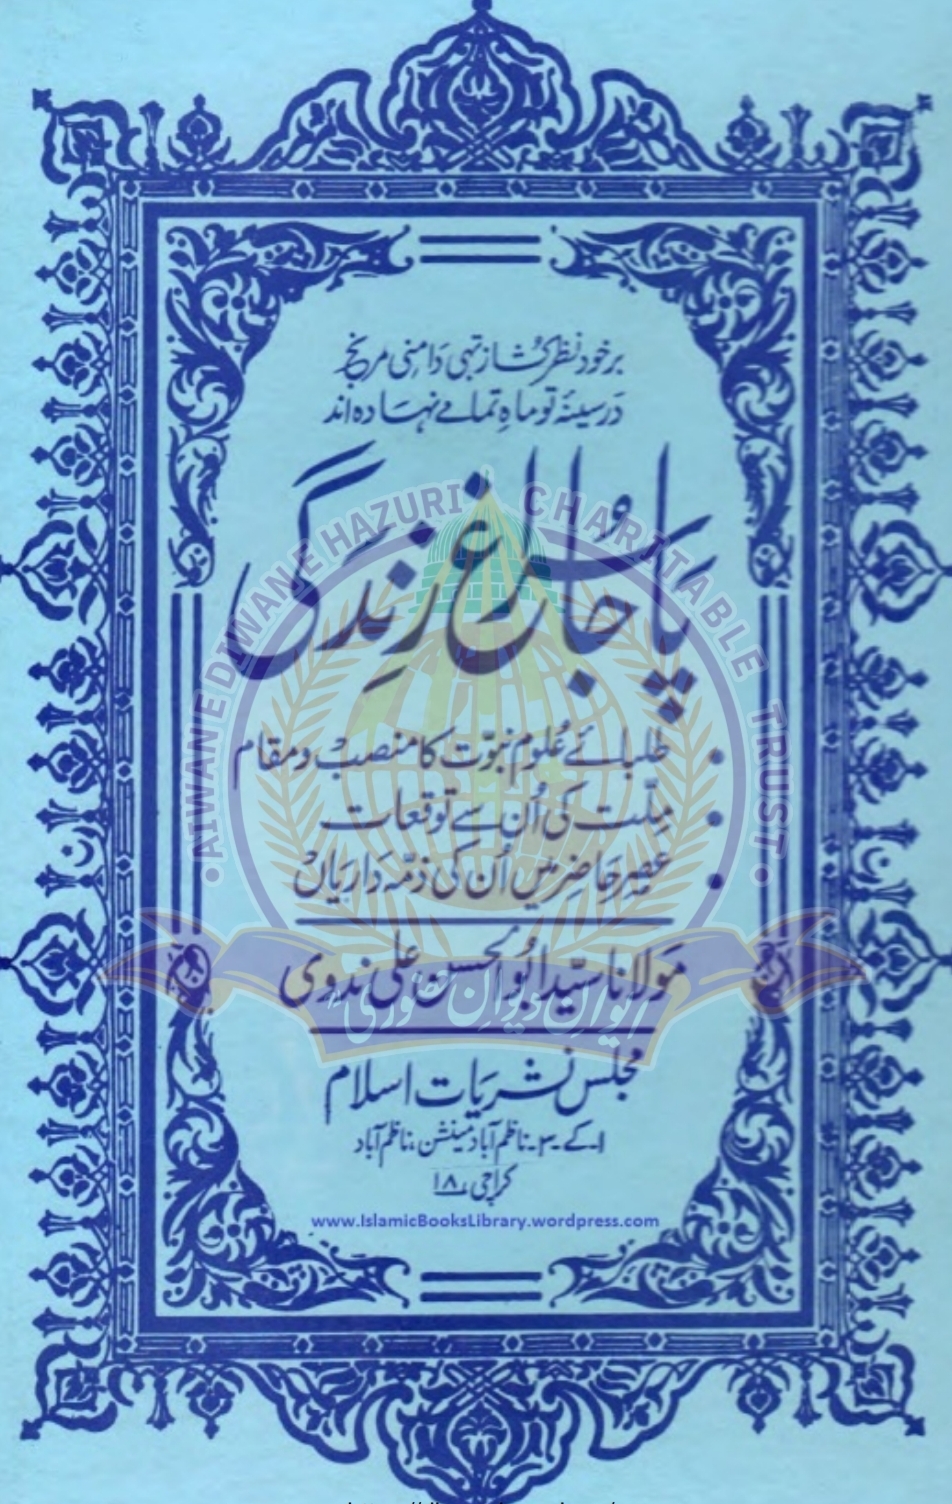 برخود نظر کشا ز تہی دامنی مرنج
در سینۂ تو ماہِ تمامے نہادہ اند
پا جا سُراغِ زندگی
• طلبائے عُلومِ نبوّت کا منصب و مقام
• مِلّت کی اُن سے توقعات
• عصرِ حاضر میں اُن کی ذمّہ داریاں
مَولانا سیّد ابُو الحسن علی ندوی
مجلس نشریات اسلام
۱۔کے۔۳۔ناظم آباد مینشن، ناظم آباد
کراچی ۱۸
www.IslamicBooksLibrary.wordpress.com
• AIWANE DIWANE HAZURI CHARITABLE TRUST •
ایوانِ دیوانِ حضوری